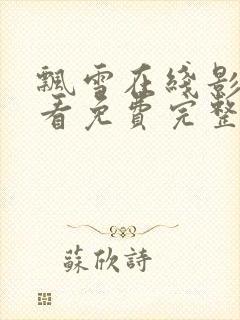 飄雪在綫影
看免費完整
蘇欣詩